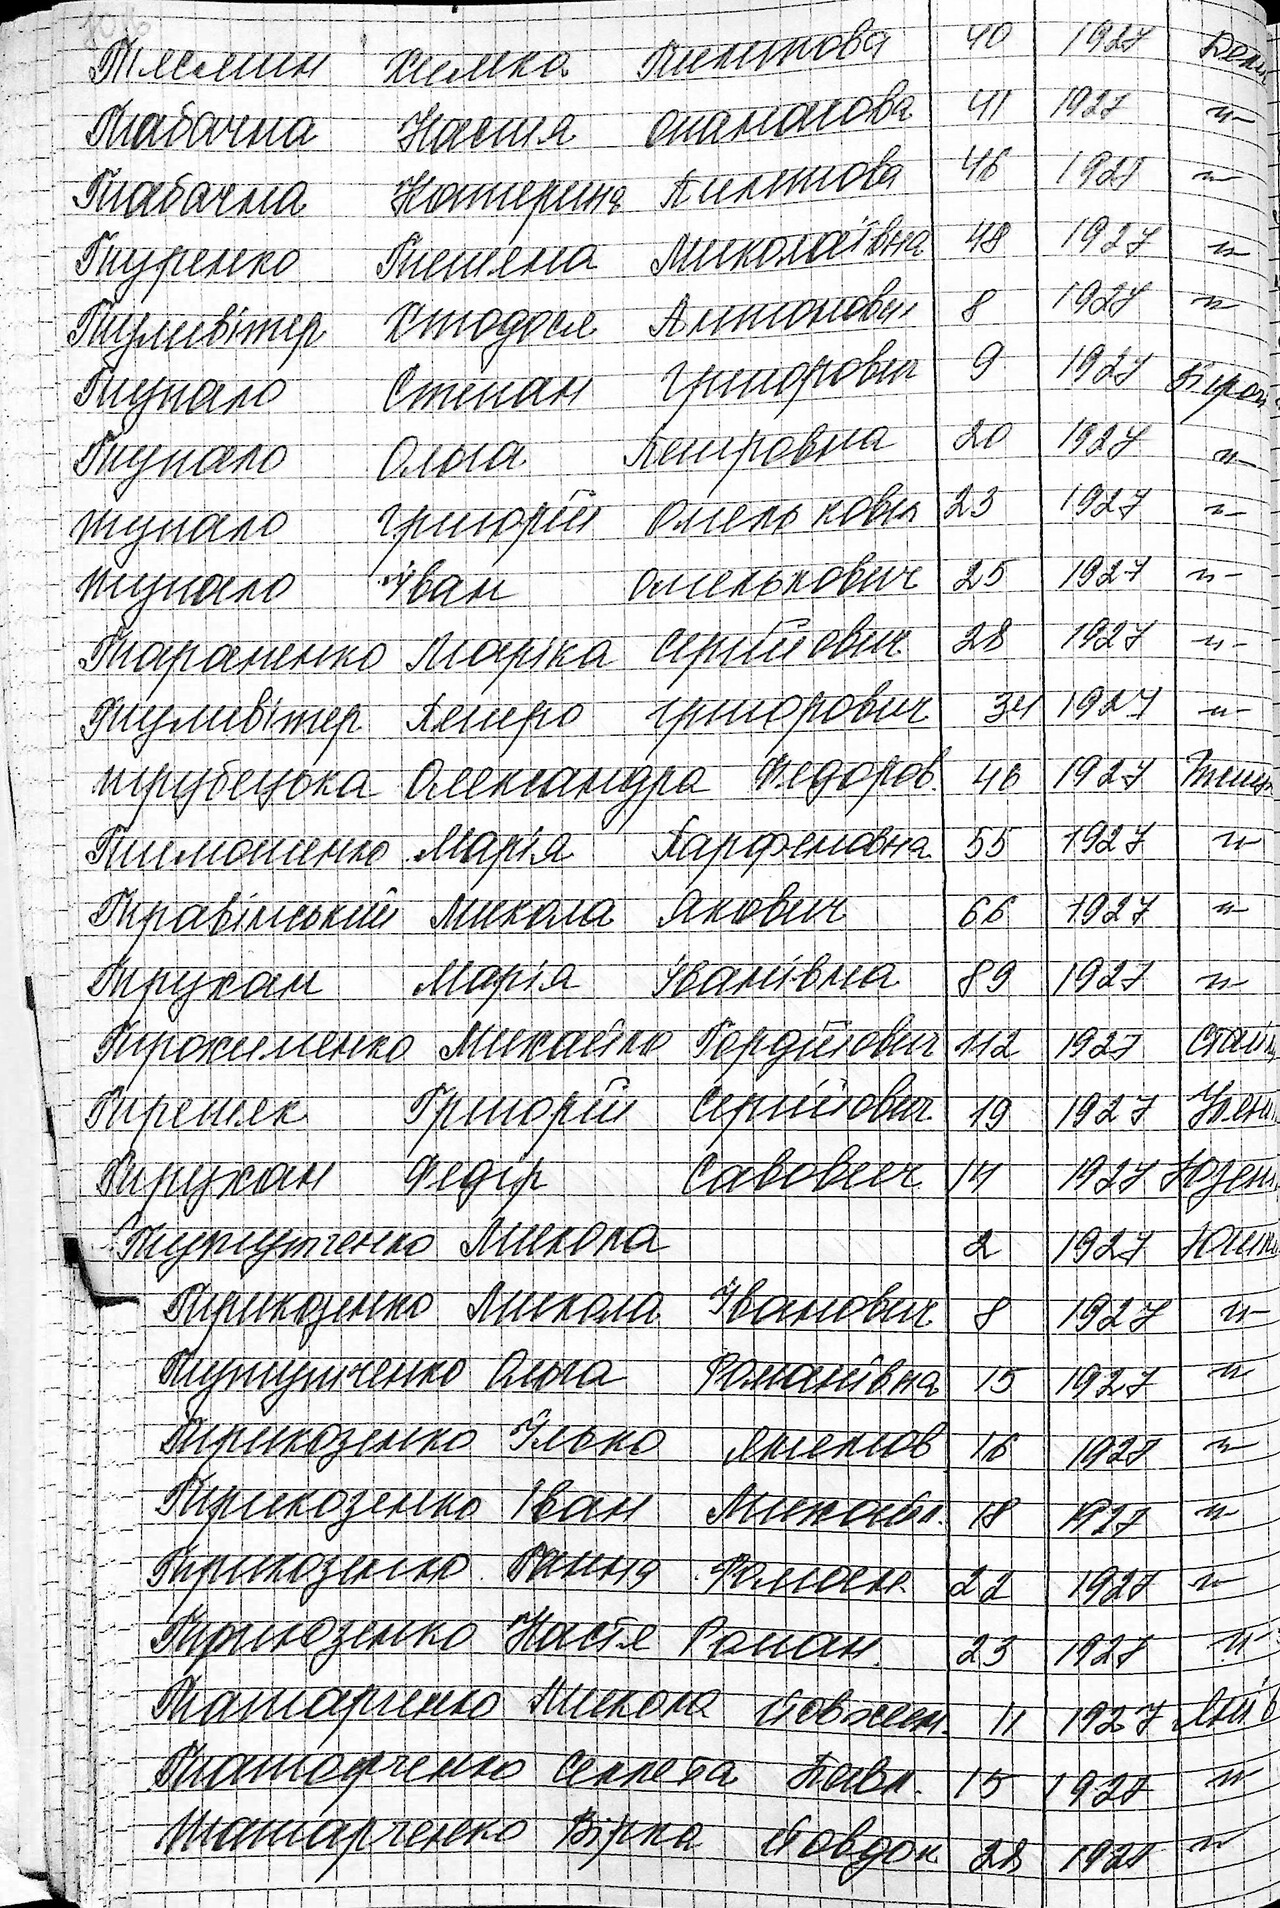 Тлесмин Химка Пилипова 40 1927
Табачна Настя Опанасова 41 1927 -"-
Табачна Катерина Пилипова 46 1927 -"-
Туренко Тетяна Миколаївна 48 1927 -"-
Тумвітер Хтодося Антонович 8 1927 -"-
Тупало Степан Григорович 9 1927
Тупало Ольга Петровна 20 1927 -"-
Тупало Григорій Омелькович 23 1927 -"-
Тупало Іван Омелькович 25 1927 -"-
Тараненко Маріка Сергійович 28 1927 -"-
Тумвітер Петро Григорович 34 1927 -"-
Трубецька Олександра Федоров. 46 1927
Тимошенко Марія Парфеновна 55 1927 -"-
Травінський Микола Якович 66 1927 -"-
Трухан Марія Іванівна 89 1927 -"-
Трохименко Михайло Гордійович 112 1927
Третяк Григорій Сергійович 19 1927
Трухан Федір Савович 17 1927
Тутутченко Микола 2 1927
Трикозенко Микола Іванович 8 1927 -"-
Тутутченко Ольга Романівна 15 1927 -"-
Трикозенко Ілько 16 1927 -"-
Трикозенко Іван Михайл. 18 1927 -"-
Трикозенко Ганна Роман. 22 1927 -"-
Трикозенко Настя Роман. 23 1927 -"-
Татарченко Микола 11 1927
Татарченко Секлета Павл. 15 1927 -"-
Татарченко Вірка 28 1927 -"-